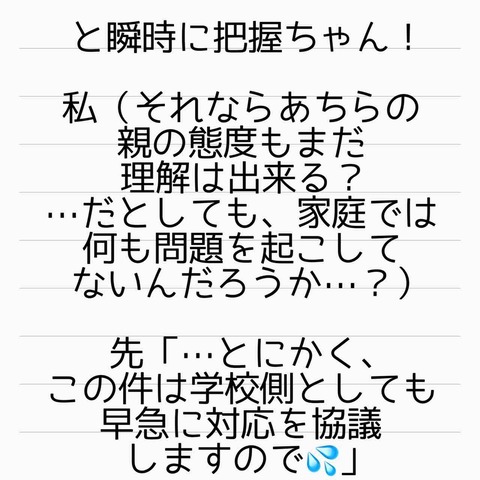 と瞬時に把握ちゃん！
私（それならあちらの
親の態度もまだ
理解は出来る？
…だとしても、家庭では
何も問題を起こして
ないんだろうか…？）
先「…とにかく、
この件は学校側としても
早急に対応を協議
しますので💦」